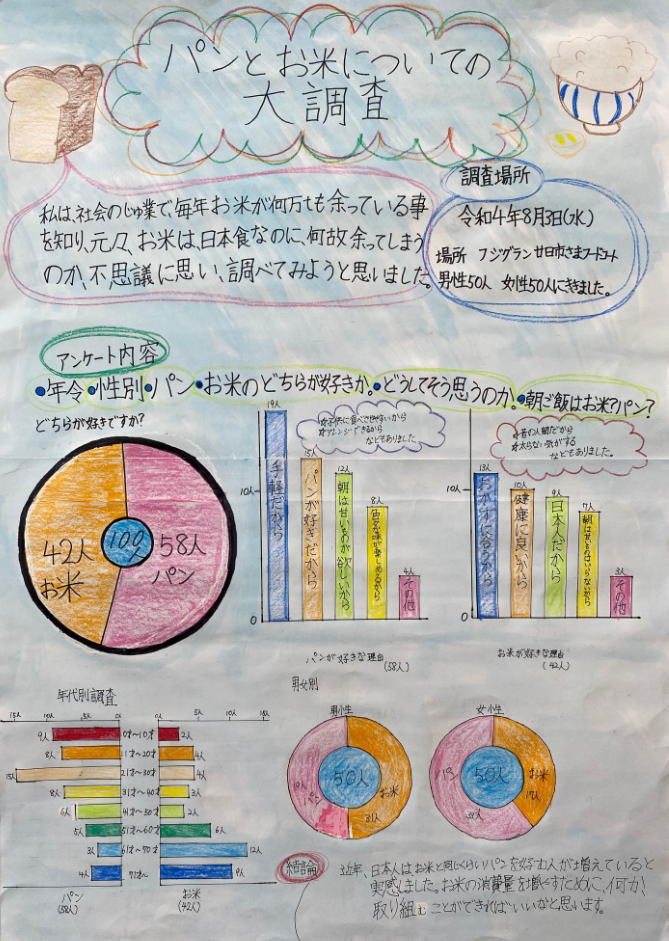 パンとお米についての
大調査
私は、社会のじゅ業で、毎年お米が何万tも余っている事
を知り、元々、お米は、日本食なのに、何故余ってしまう
のか、不思議に思い、調べてみようと思いました。
調査場所
令和4年8月3日(水)
場所 フジグラン廿日市さまフードコート
男性50人 女性50人にききました。
アンケート内容
●年令●性別●パン●お米のどちらが好きか。●どうしてそう思うのか。●朝ご飯はお米?パン?
どちらが好きですか?
42人
お米
100人
58人
パン
19人
手軽だから
15人
パンが好きだから
12人
朝は甘いものが欲しいから
8人
4人
その他
10人
0
アレンジできるから
などもありました
パンが好きな理由
(58人)
13人
おかずに合うから
10人
健康に良いから
9人
日本人だから
7人
朝は甘いものはいらないから
3人
その他
10人
0
昔の人間だから
太らない気がする
などもありました。
お米が好きな理由
(42人)
年代別調査
15人 10人 5人 0人 0人 5人 10人 15人
9人 0才〜10才 2人
8人 11才〜20才 4人
15人 21才〜30才 4人
8人 31才〜40才 3人
6人 41才〜50才 2人
5人 51才〜60才 6人
3人 61才〜70才 12人
4人 71才〜 9人
パン
(58人)
お米
(42人)
男女別
男性
50人
19人
パン
お米
31人
女性
50人
パン
お米
結論
近年、日本人はお米と同じくらいパンを好む人が増えていると
実感しました。お米の消費量を増やすために、何か
取り組むことができればいいなと思います。